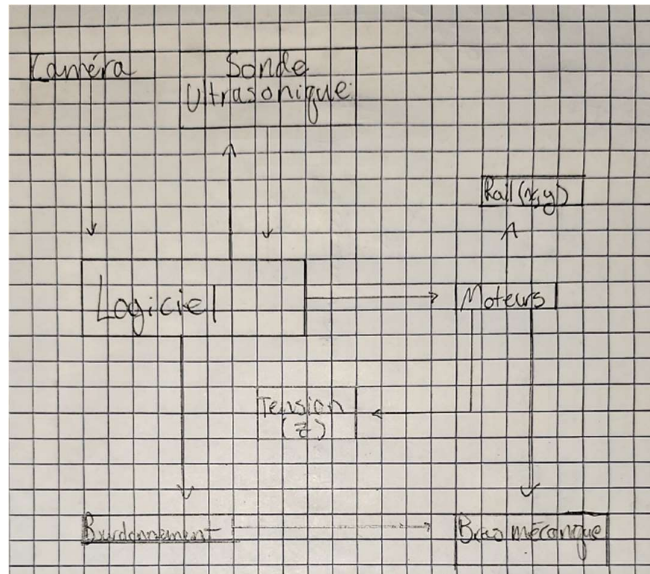 Caméra
Sonde
Ultrasonique
Rail (x,y)
Logiciel
Moteurs
Tension
(z)
Bras mécanique